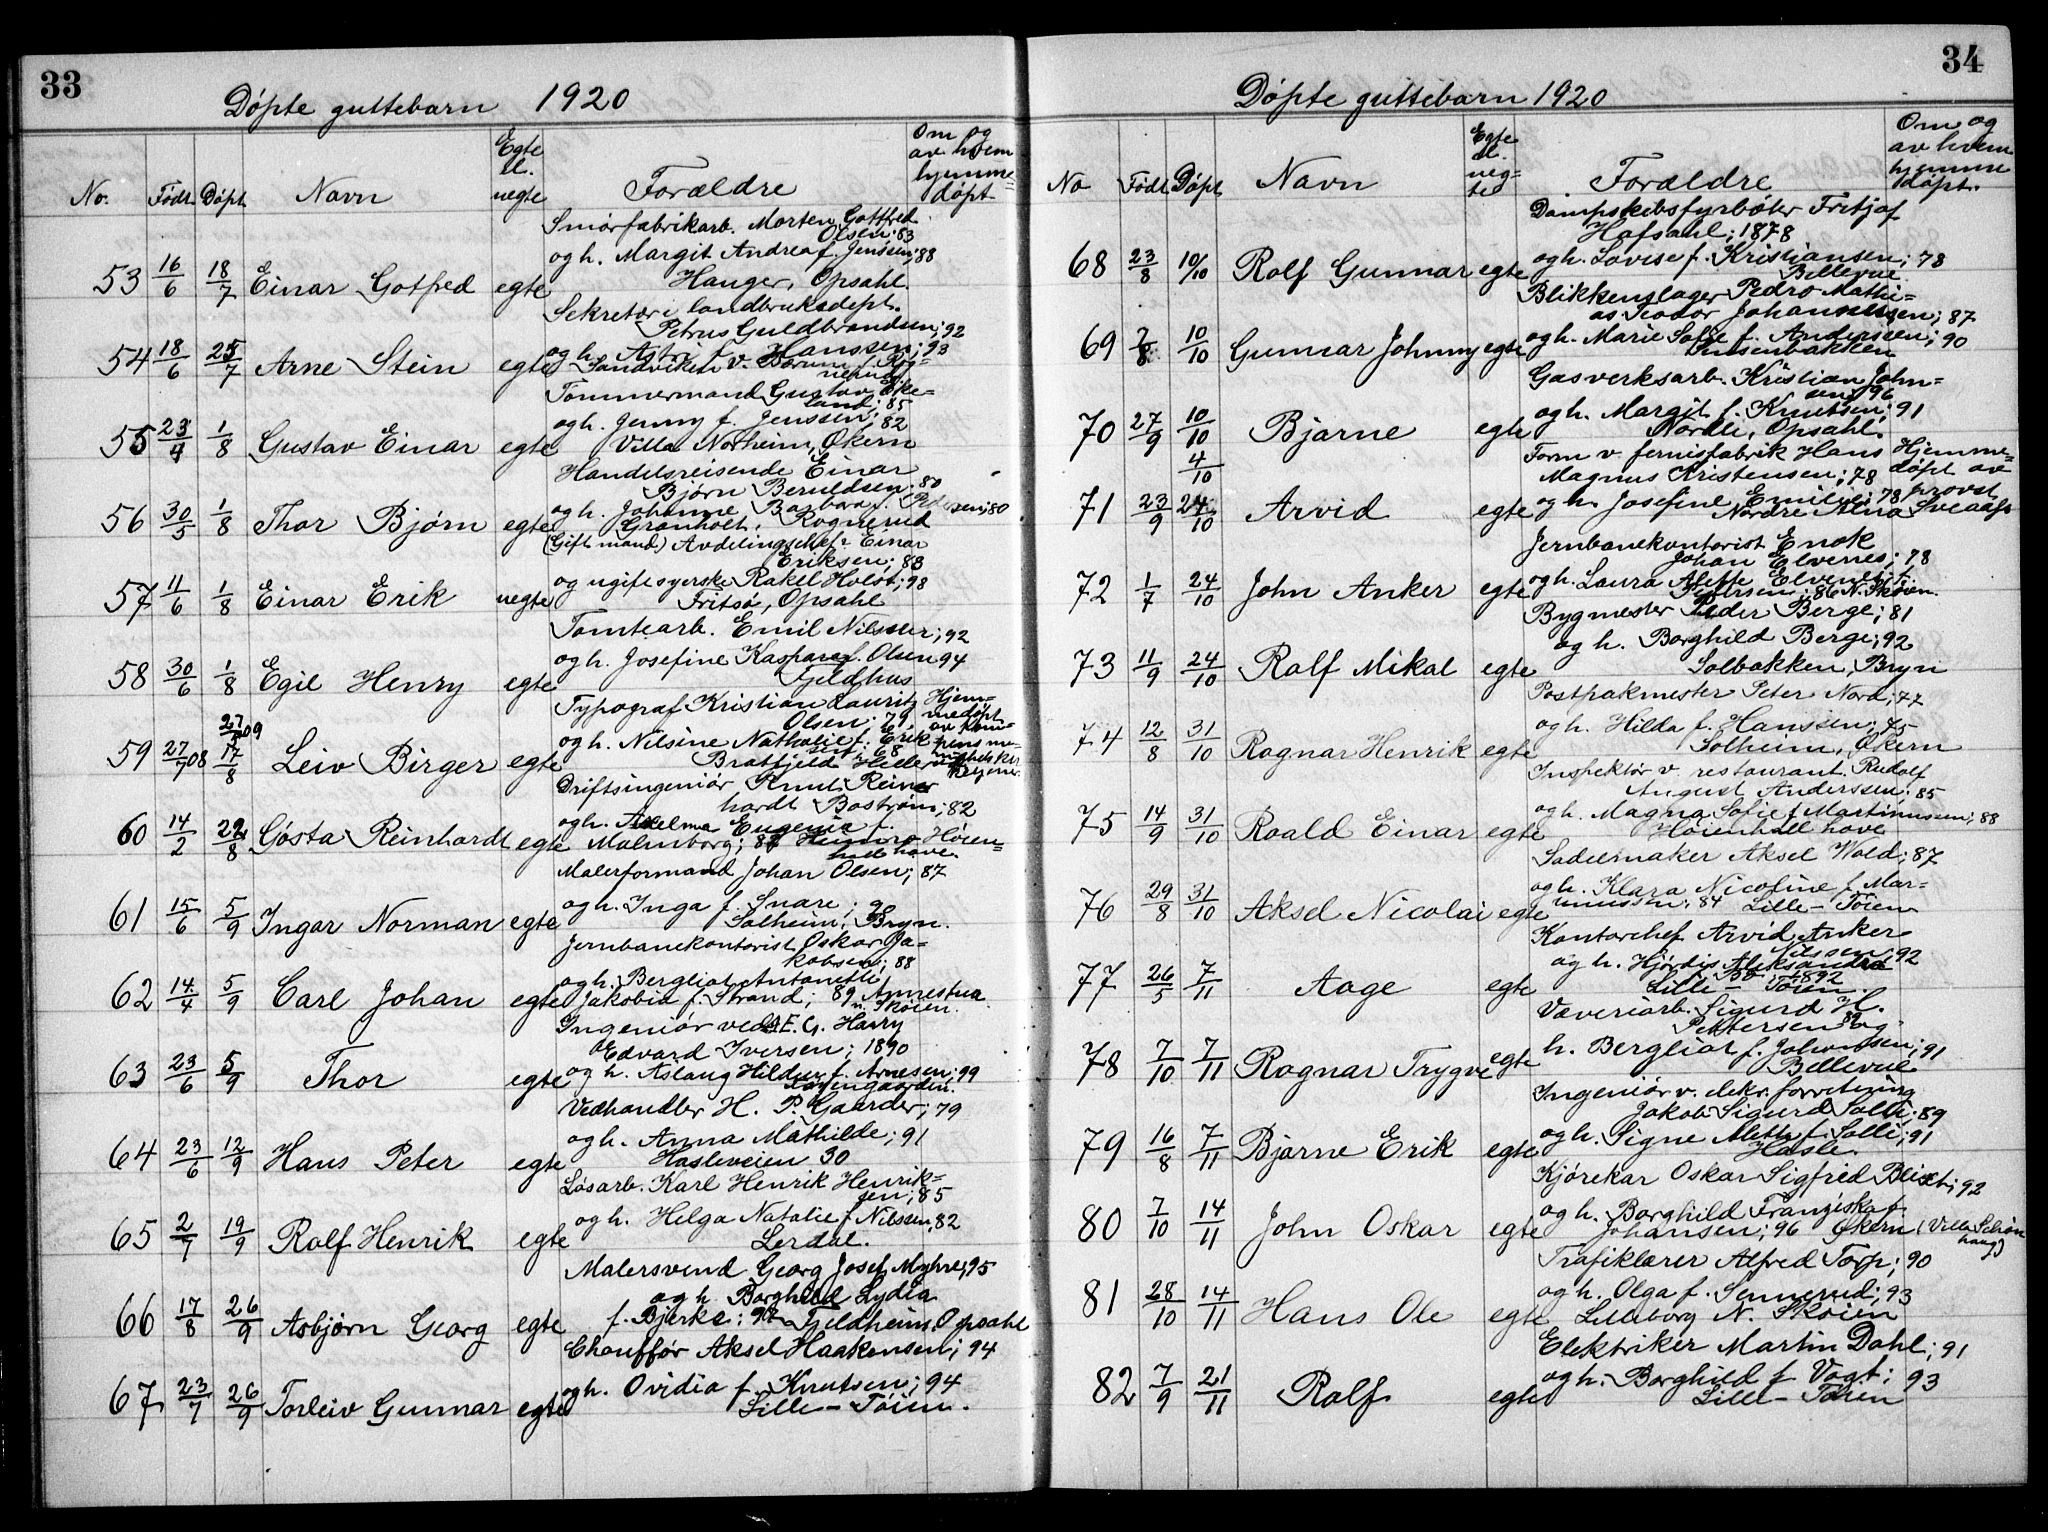 33
Døpte guttebarn 1920
No. Født Døpt Navn Egte el. uegte Forældre Om og av hvem hjemme=døpt
Smørfabrikarb. Morten Gottfred
Olsen; 83
og h. Margit Andrea f. Jenssen; 88
53 16/6 18/7 Einar Gotfred egte Hauger, Opsahl.
Sekretær i landbruksdept.
Petrus Guldbrandsen; 92
og h. f. Hanssen; 93
54 18/6 25/7 Arne Stein egte Sandviken v. Bærum
Tømmermand Gustav Øke=
land; 85
og h. Jenny f. Jenssen; 82
55 23/4 1/8 Gustav Einar egte Villa Norheim, Økern
Handelsreisende Einar
Bjørn Beruldsen; 80
og h. Johanne Barbara f. Petersen; 80
56 30/5 1/8 Thor Bjørn egte Granholt, Rognerud
(Gift mand) Avdelingschef Einar
Eriksen; 83
og ugift syerske Rakel Holst; 98
57 11/6 1/8 Einar Erik uegte Fritsø, Opsahl
Tomtearb. Emil Nilssen; 92
og h. Josefine Kaspara f. Olsen 94
58 30/6 1/8 Egil Henry egte Gildhus
Typograf Kristian Lauritz Hjem=
Olsen; 79 medøpt
27/7 09 og h. Nilsine Nathalie f. Erik
59 27/7 08 17/8 Leiv Birger egte sen; 68
Bratfjeld Hiller
Driftsingeniør Knut Reiner
hardt Bostrøm; 82
og h. Adelma Eugenie f.
60 14/2 29/8 Gøsta Reinhardt egte Malmborg; 87 Høien=
hall have.
Malerformand Johan Olsen; 87
og h. Inga f. Snare; 90
61 15/6 5/9 Ingar Norman egte Solheim, Bryn.
Jernbanekontorist Oskar Ja=
kobsen; 88
og h. Bergliot Antonette
62 14/4 5/9 Carl Johan egte Jakobia f. Strand; 89 Annestua
n. Skøien.
Ingeniør ved A.E.G. Harry
Edvard Iversen; 1890
og h. Aslaug Hildur f. Arnesen; 99
63 23/6 5/9 Thor egte Løvengaarden.
Vedhandler H. P. Gaarder; 79
og h. Anna Mathilde; 91
64 23/6 12/9 Hans Peter egte Hasleveien 30
Løsarb. Karl Henrik Henrik=
sen; 85
og h. Helga Natalie f. Nilssen, 82
65 2/7 19/9 Rolf Henrik egte Lerdal.
Malersvend Georg Josef Myhre, 95
og h. Borghild Lydia
66 17/8 26/9 Asbjørn Georg egte f. Bjerke; 97 Fjeldheim, Opsahl
Chauffør Aksel Haakensen; 94
og h. Ovidia f. Knutsen; 94
67 23/7 26/9 Torleiv Gunnar egte Lille-Tøien.
34
Døpte guttebarn 1920
No Født Døpt Navn Egte el. ueg=te Forældre Om og av hvem hjemme døpt.
Dampskibsfyrbøter Fritjof
Hafsahl; 1878
og h. Lovise f. Kristiansen; 78
68 23/8 10/10 Rolf Gunnar egte Bellevue
Blikkenslager Pedro Mathi=
as Teodor Johannessen; 87
og h. Marie Sofie f. Anderssen; 90
69 7/8 10/10 Gunnar Johnny egte Ensenbakken
Gasverksarb. Kristian John=
sen; 96
og h. Margit f. Knutsen; 91
70 27/9 10/10 Bjarne egte Nordli, Opsahl.
Form v. fernisfabrik Hans Hjemme=
4/10 Magnus Kristensen; 78 døpt av
og h. Josefine Emilie; 78 provst
71 23/9 24/10 Arvid egte Nordre Alna Sveaas
Jernbanekontorist Enok
Johan Elvenes; 78
og h. Laura Alette Elvenes f.
72 1/7 24/10 John Anker egte Petersen; 86 N. Skøien.
Bygmester Peder Berge; 81
og h. Borghild Berge; 92
73 11/9 24/10 Rolf Mikal egte Solbakken, Bryn
Postpakmester Peter Nord; 77
og h. Hilda f. Hanssen; 75
74 12/8 31/10 Ragnar Henrik egte Solheim, Økern
Inspektør v. restaurant. Rudolf
August Anderssen; 85
og h. Magna Sofie f. Martinusen; 88
75 14/9 31/10 Roald Einar egte Høienhall have
Sadelmaker Aksel Wold; 87
og h. Klara Nicoline f. Mar=
76 29/8 31/10 Aksel Nicolai egte tinussen; 84 Lille-Tøien
Kontorchef Arvid Anker
Nilssen, 92
og h. Hjørdis Aleksandra
1892
77 26/5 7/11 Aage egte Lille-Tøien.
Væveriarb. Sigurd H.
Pettersen 89 og
h. Bergliot f. Johansen; 91
78 7/10 7/11 Ragnar Trygve egte Bellevue
Ingeniør v. elekr. forretning
Jakob Sigurd Solli; 89
og h. Signe Mette f. Solli; 91
79 16/8 7/11 Bjarne Erik egte Hasle.
Kjørekar Oskar Sigfred Blixt; 92
og h. Borghild Franziska f.
80 7/10 14/11 John Oskar egte Johansen; 96 Økern (Villa Solvin
haug)
Trafiklærer Alfred Torp; 90
og h. Olga f. Sennerud; 93
81 28/10 14/11 Hans Ole egte Lilleborg N. Skøien
Elektriker Martin Dahl; 91
og h. Borghild f. Vogt; 93
82 7/9 21/11 Rolf egte Lille-Tøien